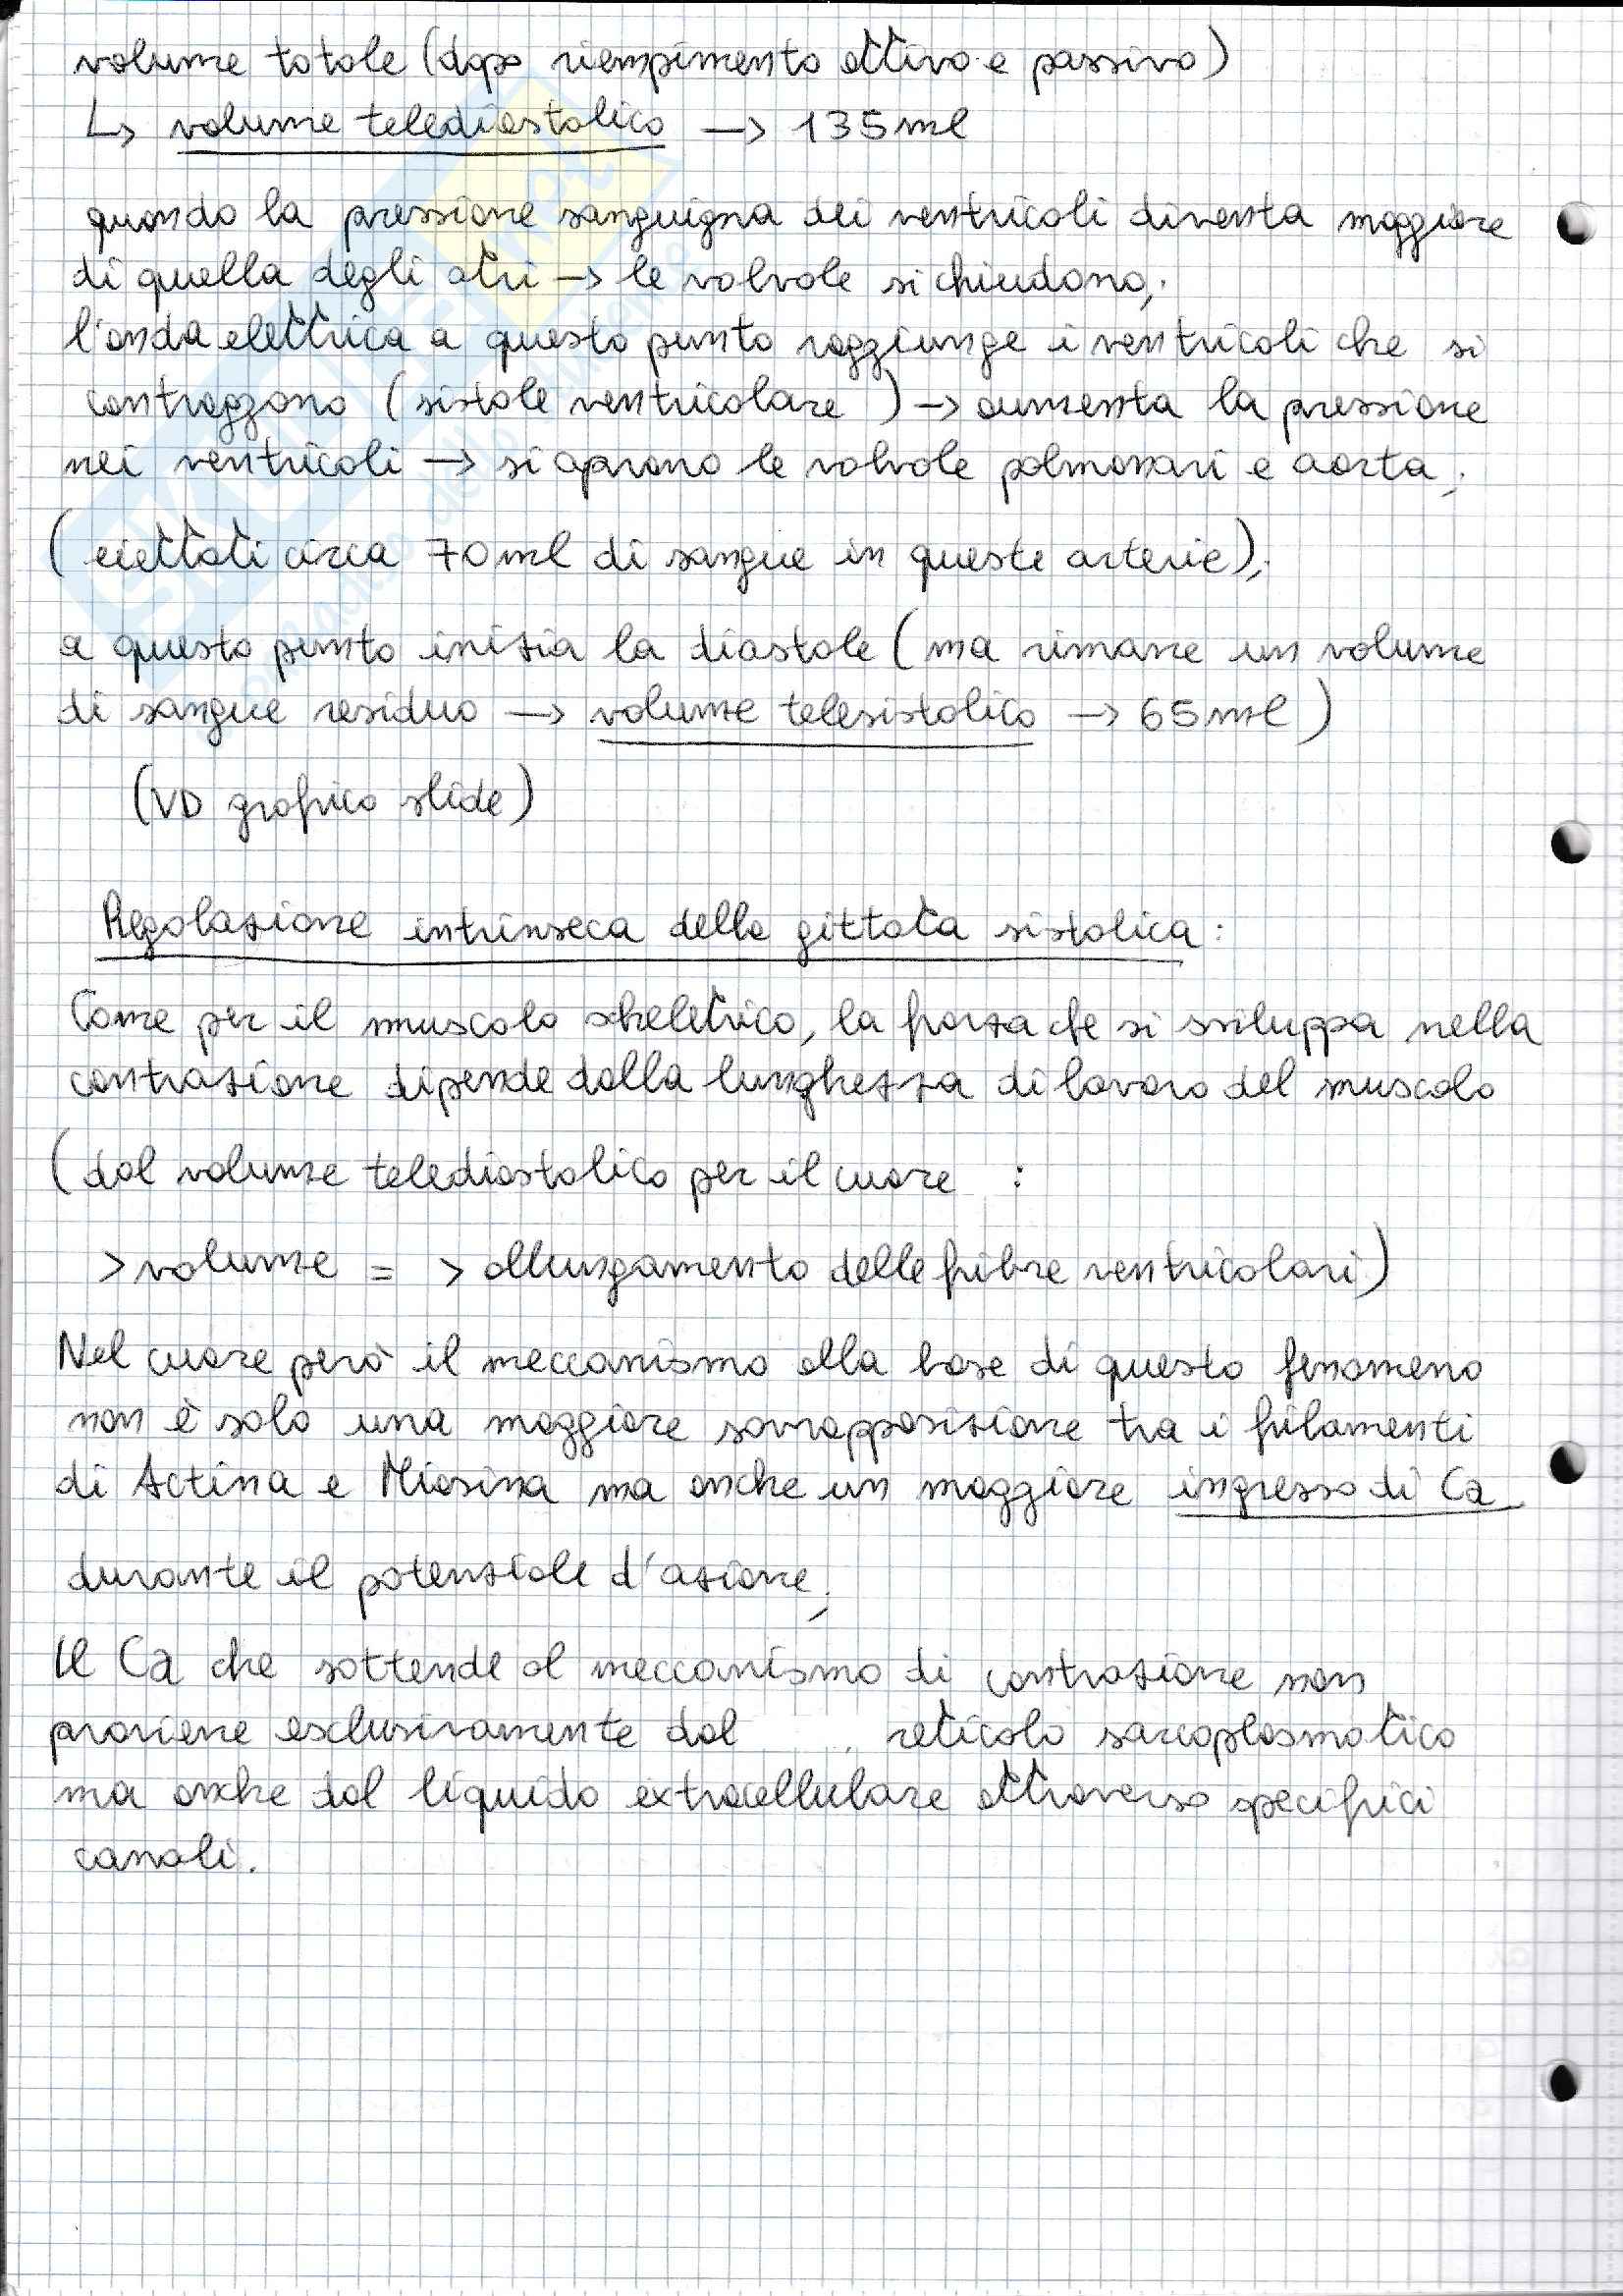 volume totale (dopo riempimento attivo e passivo)
↳ volume telediastolico → 135 ml
quando la pressione sanguigna dei ventricoli diventa maggiore
di quella degli atri → le valvole si chiudono;
l'onda elettrica a questo punto raggiunge i ventricoli che si
contraggono (sistole ventricolare) → aumenta la pressione
nei ventricoli → si aprono le valvole polmonari e aorta;
(eiettati circa 70 ml di sangue in queste arterie);
a questo punto inizia la diastole (ma rimane un volume
di sangue residuo → volume telesistolico → 65 ml)
(VD grafico slide)
Regolazione intrinseca della gittata sistolica:
Come per il muscolo scheletrico, la forza che si sviluppa nella
contrazione dipende dalla lunghezza di lavoro del muscolo
(dal volume telediastolico per il cuore :
> volume = > allungamento delle fibre ventricolari)
Nel cuore però il meccanismo alla base di questo fenomeno
non è solo una maggiore sovrapposizione tra i filamenti
di Actina e Miosina ma anche un maggiore ingresso di Ca
durante il potenziale d'azione;
Il Ca che sottende al meccanismo di contrazione non
proviene esclusivamente dal reticolo sarcoplasmatico
ma anche dal liquido extracellulare attraverso specifici
canali.